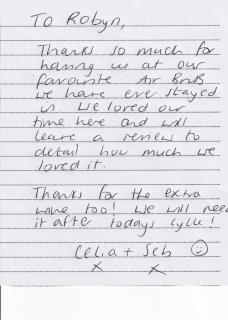 To Robyn,
Thanks so much for
having us at our
favourite Air BnB
we have ever stayed
in. We loved our
time here and will
leave a review to
detail how much we
loved it.
Thanks for the extra
wine too! We will need
it after todays
Celia + Seb ☺
x x